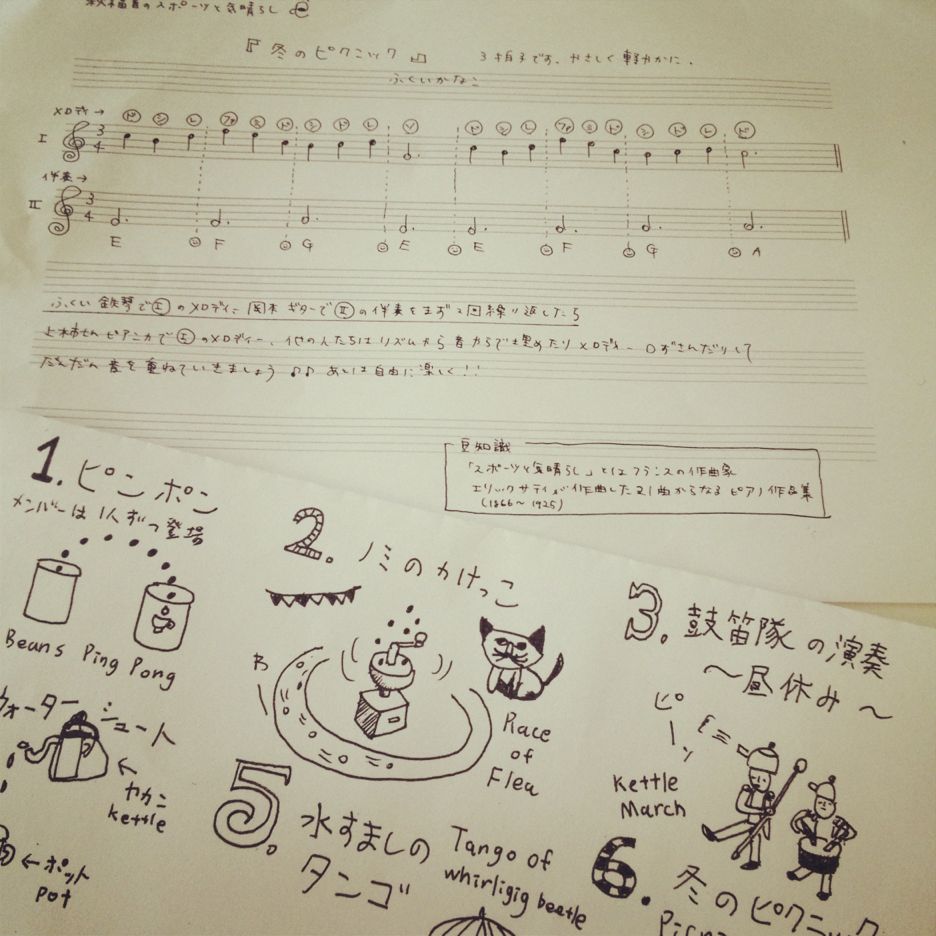 のスポーツと気晴らし
『冬のピクニック』 3拍子です、やさしく軽やかに.
ふくいかなこ
メロディ→
ド シ レ ファ ミ ド シ ド レ ソ ド シ レ ファ ミ ド シ ド レ ド
I 3 4
伴奏→
II 3 4
E F G E E F G A
ふくい 鉄琴でⒾのメロディー、岡本 ギターでⅡの伴奏をまず2回繰り返したら
ピアニカでⒾのメロディー、他の人たちはリズムから音からで埋めたりメロディー口ずさんだりして
だんだん音を重ねていきましょう ♪♪ あとは自由に楽しく!!
豆知識
「スポーツと気晴らし」とはフランスの作曲家
エリックサティが作曲した21曲からなるピアノ作品集
(1866〜1925)
1. ピンポン
メンバーは1人ずつ登場
Beans Ping Pong
2. ノミのかけっこ
Race
of
Flea
3. 鼓笛隊の演奏
〜昼休み〜
ピーッ
Kettle
March
ウォーターシュート
←ヤカン
kettle
←ポット
pot
5. 水すましの
タンゴ
Tango of
whirligig beetle
6. 冬のピクニック